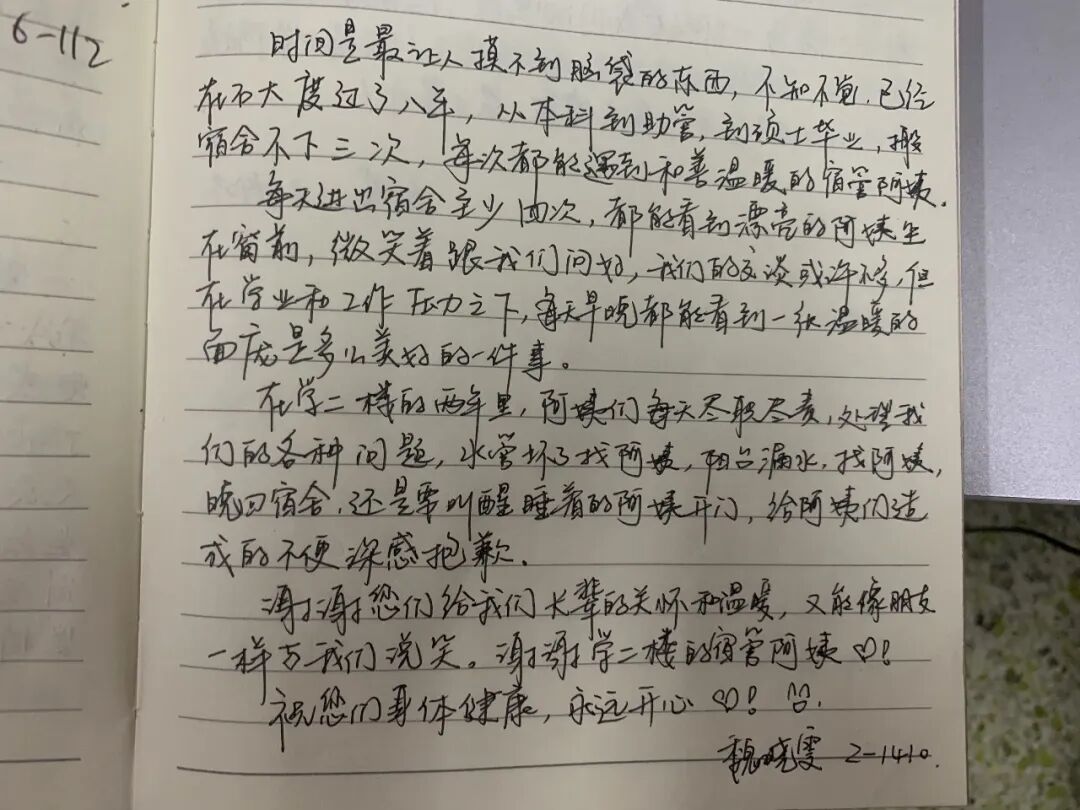 6-112
时间是最让人摸不到脑袋的东西，不知不觉，已经
在石大度过了八年，从本科到助管，到硕士毕业，搬
宿舍不下三次，每次都能遇到和善温暖的宿管阿姨．
每天进出宿舍至少四次，都能看到漂亮的阿姨坐
在窗前，微笑着跟我们问好，我们的交谈或许不多，但
在学业和工作压力之下，每天早晚都能看到一张温暖的
面庞是多么美好的一件事。
在学二楼的两年里，阿姨们每天尽职尽责，处理我
们的各种问题，水管坏了找阿姨，阳台漏水，找阿姨，
晚回宿舍，还是要叫醒睡着的阿姨开门，给阿姨们造
成的不便深感抱歉．
谢谢您们给我们长辈的关怀和温暖，又能像朋友
一样与我们说笑。谢谢学二楼的宿管阿姨♡！
祝您们身体健康，永远开心♡！
魏晓雯 2-1410．